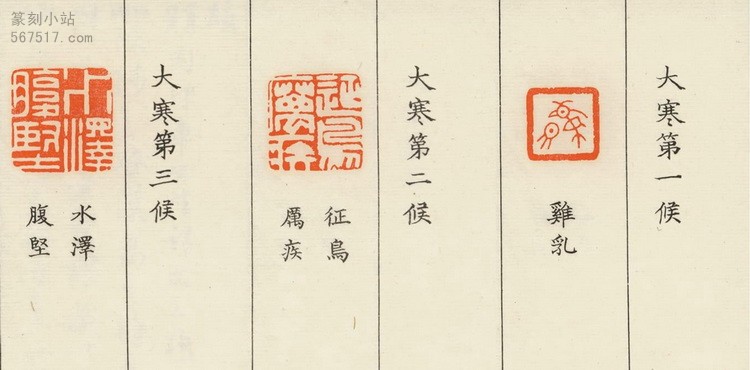 篆刻小站
567517.com
大寒第一候
雞乳
大寒第二候
征鳥
厲疾
大寒第三候
水澤
腹堅
水澤
腹堅